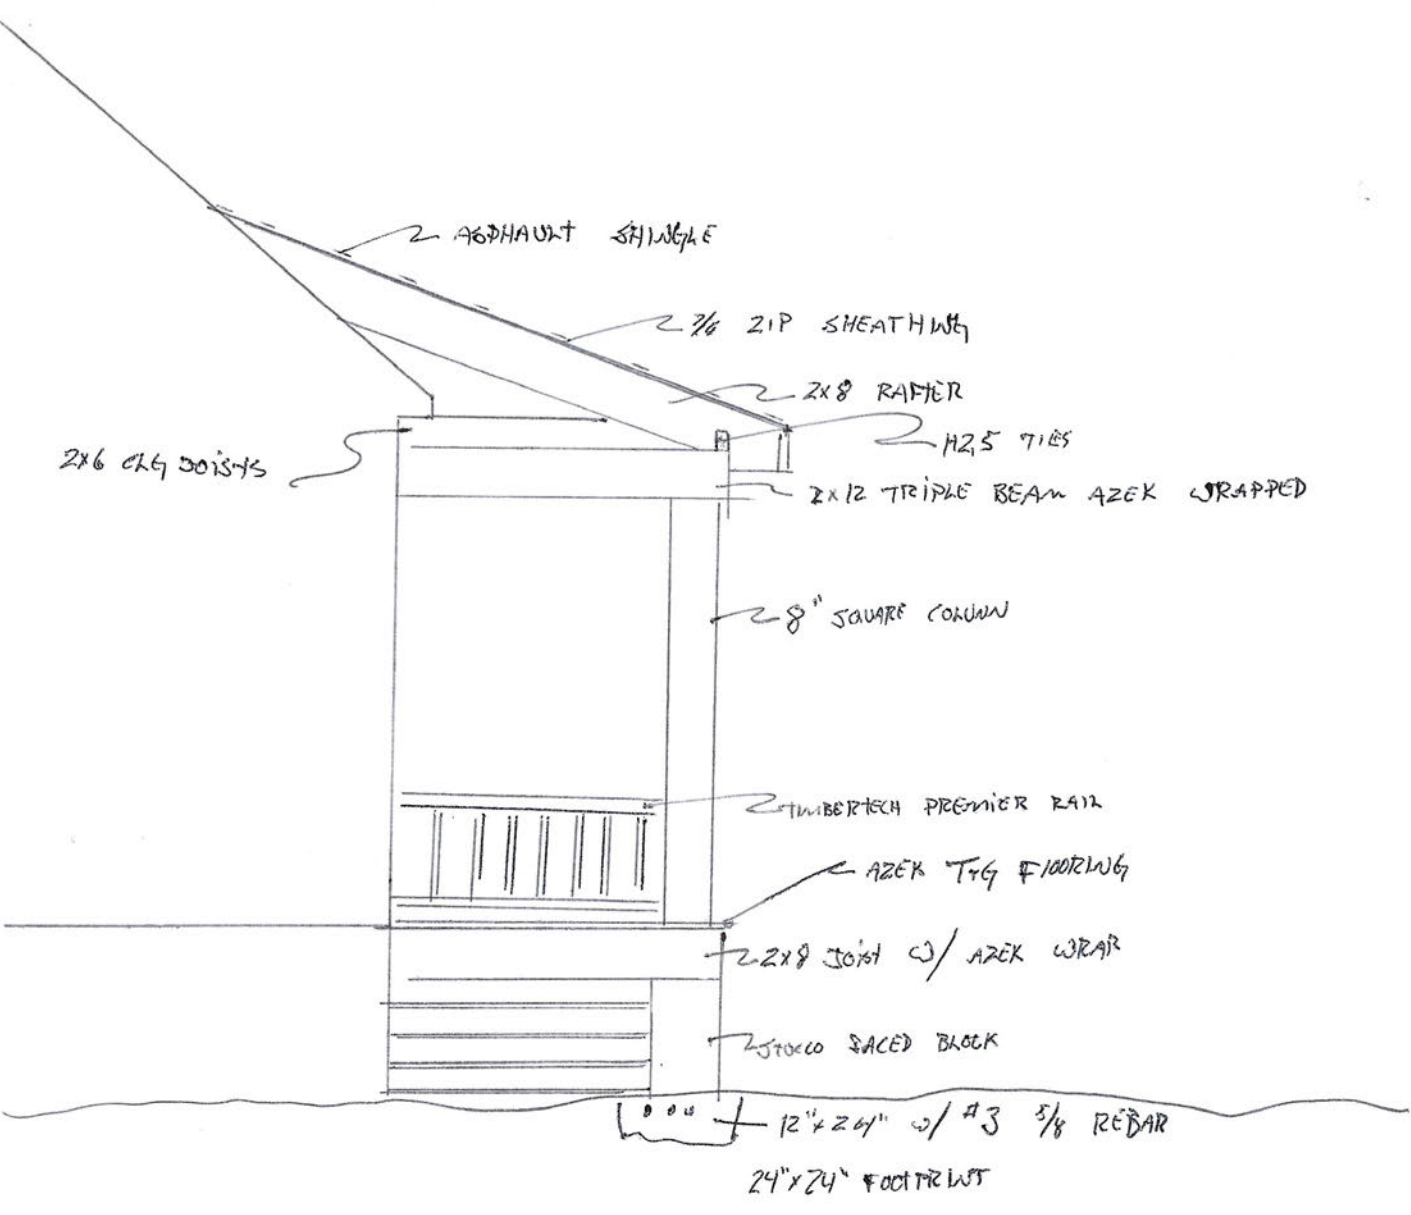 ASPHAULT SHINGLE
7/16 ZIP SHEATHING
2x8 RAFTER
H2.5 TIES
2x6 CLG JOISTS
2x12 TRIPLE BEAM AZEK WRAPPED
8" SQUARE COLUMN
TIMBERTECH PREMIER RAIL
AZEK T+G FLOORING
2x8 JOIST W/ AZEK WRAP
STUCCO FACED BLOCK
12"x24" W/ #3 5/8 REBAR
24"x24" FOOTPRINT